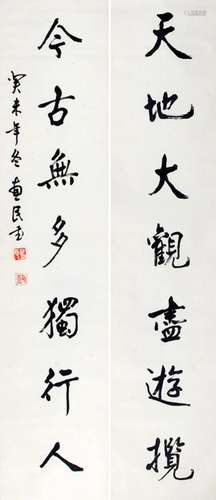 天地大觀盡遊攬
今古無多獨行人
癸未年冬惠民書